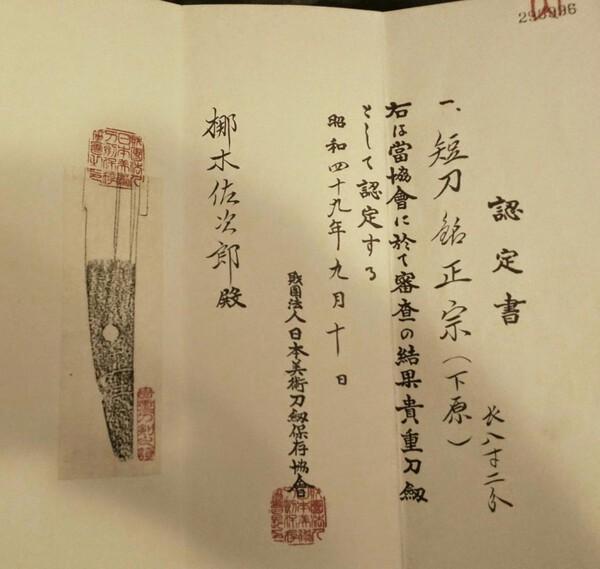 認定書
一、短刀 銘 正宗(下原)
長八寸二分
右は當協會に於て審査の結果貴重刀劔
として認定する
昭和四十九年九月十日
財團法人日本美術刀劔保存協會
梛木佐次郎殿